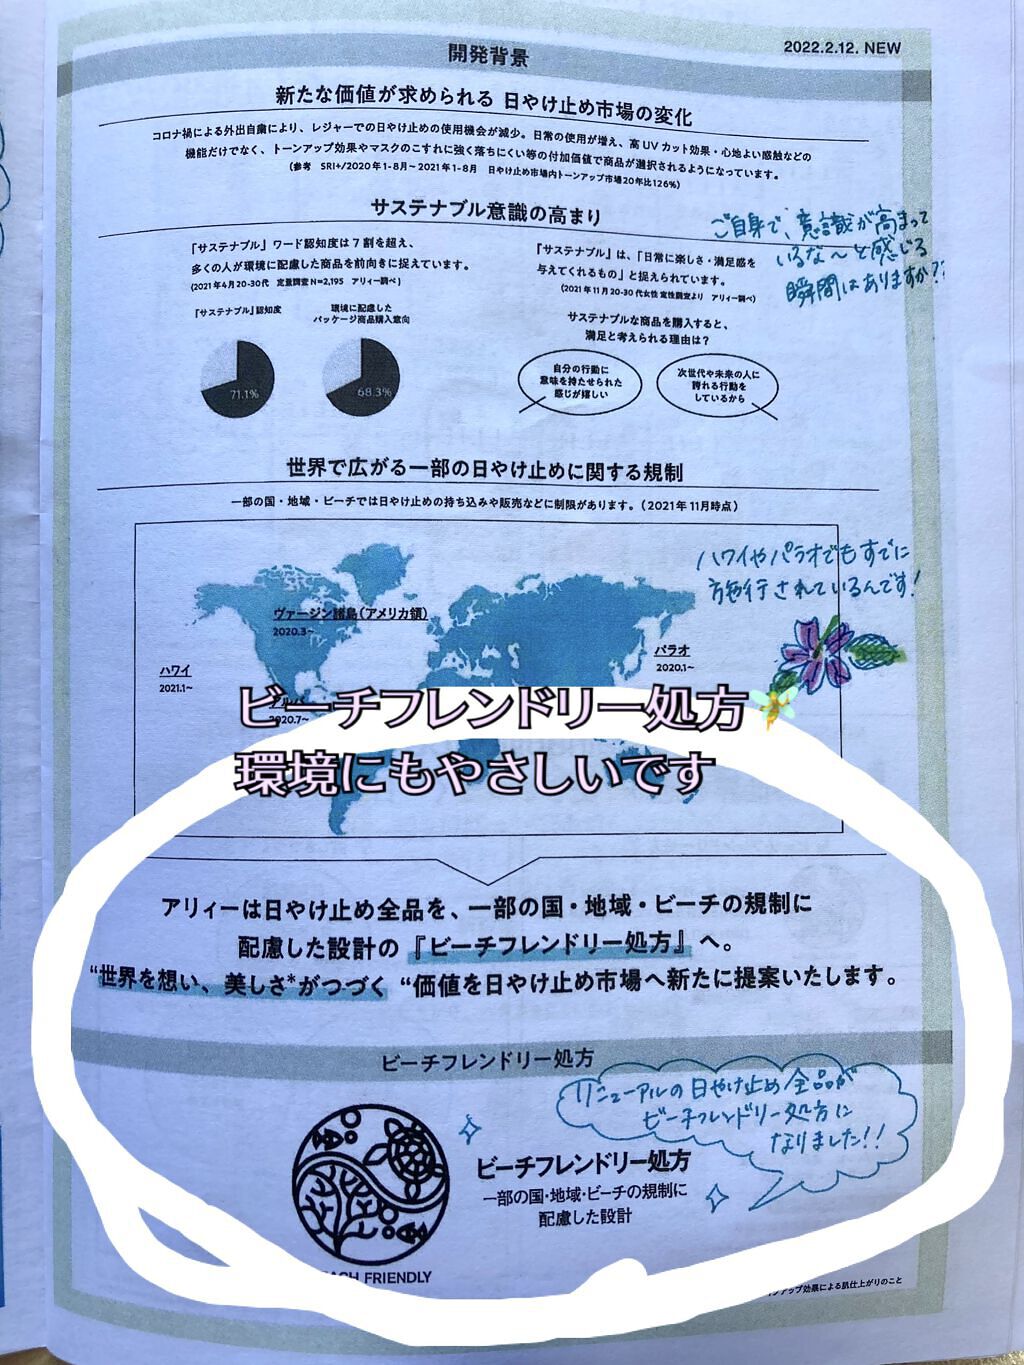 開発背景
2022.2.12. NEW
新たな価値が求められる 日やけ止め市場の変化
コロナ禍による外出自粛により、レジャーでの日やけ止めの使用機会が減少。日常の使用が増え、高UVカット効果・心地よい感触などの
機能だけでなく、トーンアップ効果やマスクのこすれに強く落ちにくい等の付加価値で商品が選択されるようになっています。
(参考 SRI+/2020年1-8月～2021年1-8月 日やけ止め市場内トーンアップ市場20年比126%)
サステナブル意識の高まり
「サステナブル」ワード認知度は7割を超え、
多くの人が環境に配慮した商品を前向きに捉えています。
(2021年4月20-30代 定量調査 N=2,195 アリィー調べ)
「サステナブル」認知度
環境に配慮した
パッケージ商品購入意向
71.1%
68.3%
『サステナブル』は、「日常に楽しさ・満足感を
与えてくれるもの」と捉えられています。
(2021年11月20-30代女性 定性調査より アリィー調べ)
サステナブルな商品を購入すると、
満足と考えられる理由は？
自分の行動に
意味を持たせられた
感じが嬉しい
次世代や未来の人に
誇れる行動を
しているから
ご自身で、意識が高まって
いるな～と感じる
瞬間はありますか??
世界で広がる一部の日やけ止めに関する規制
一部の国・地域・ビーチでは日やけ止めの持ち込みや販売などに制限があります。(2021年11月時点)
ハワイやパラオでもすでに
施行されているんです！
ヴァージン諸島(アメリカ領)
2020.3~
パラオ
2020.1~
ハワイ
2021.1~
アルバ
2020.7~
ビーチフレンドリー処方
環境にもやさしいです
アリィーは日やけ止め全品を、一部の国・地域・ビーチの規制に
配慮した設計の『ビーチフレンドリー処方』へ。
“世界を想い、美しさ*がつづく “価値を日やけ止め市場へ新たに提案いたします。
ビーチフレンドリー処方
リニューアルの日やけ止め全品が
ビーチフレンドリー処方に
なりました!!
ビーチフレンドリー処方
一部の国・地域・ビーチの規制に
配慮した設計
FRIENDLY
アップ効果による肌仕上がりのこと